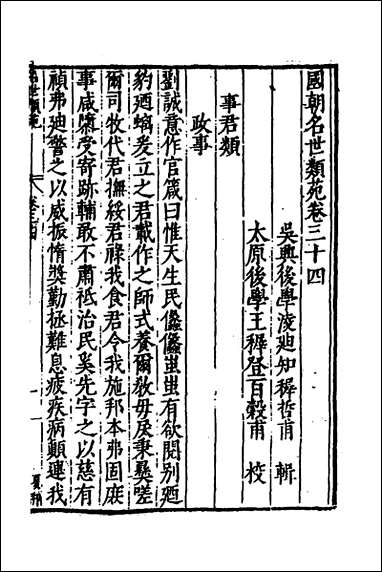 國朝名世類苑卷三十四
吳興後學凌廸知穉哲甫 輯
太原後學王穉登百穀甫 校
事君類
政事
劉誠意作官箴曰惟天生民儦儦蚩蚩有欲罔別廼
豹廼螭爰立之君載作之師式養爾敎毋戾秉彝嗟
爾司牧代君撫綏君祿我食君令我施邦本弗固庶
事咸隳受寄跡輔敢不肅祗治民奚先字之以慈有
頑弗廸警之以威振惰奬勤拯難息疲疾病顚連我